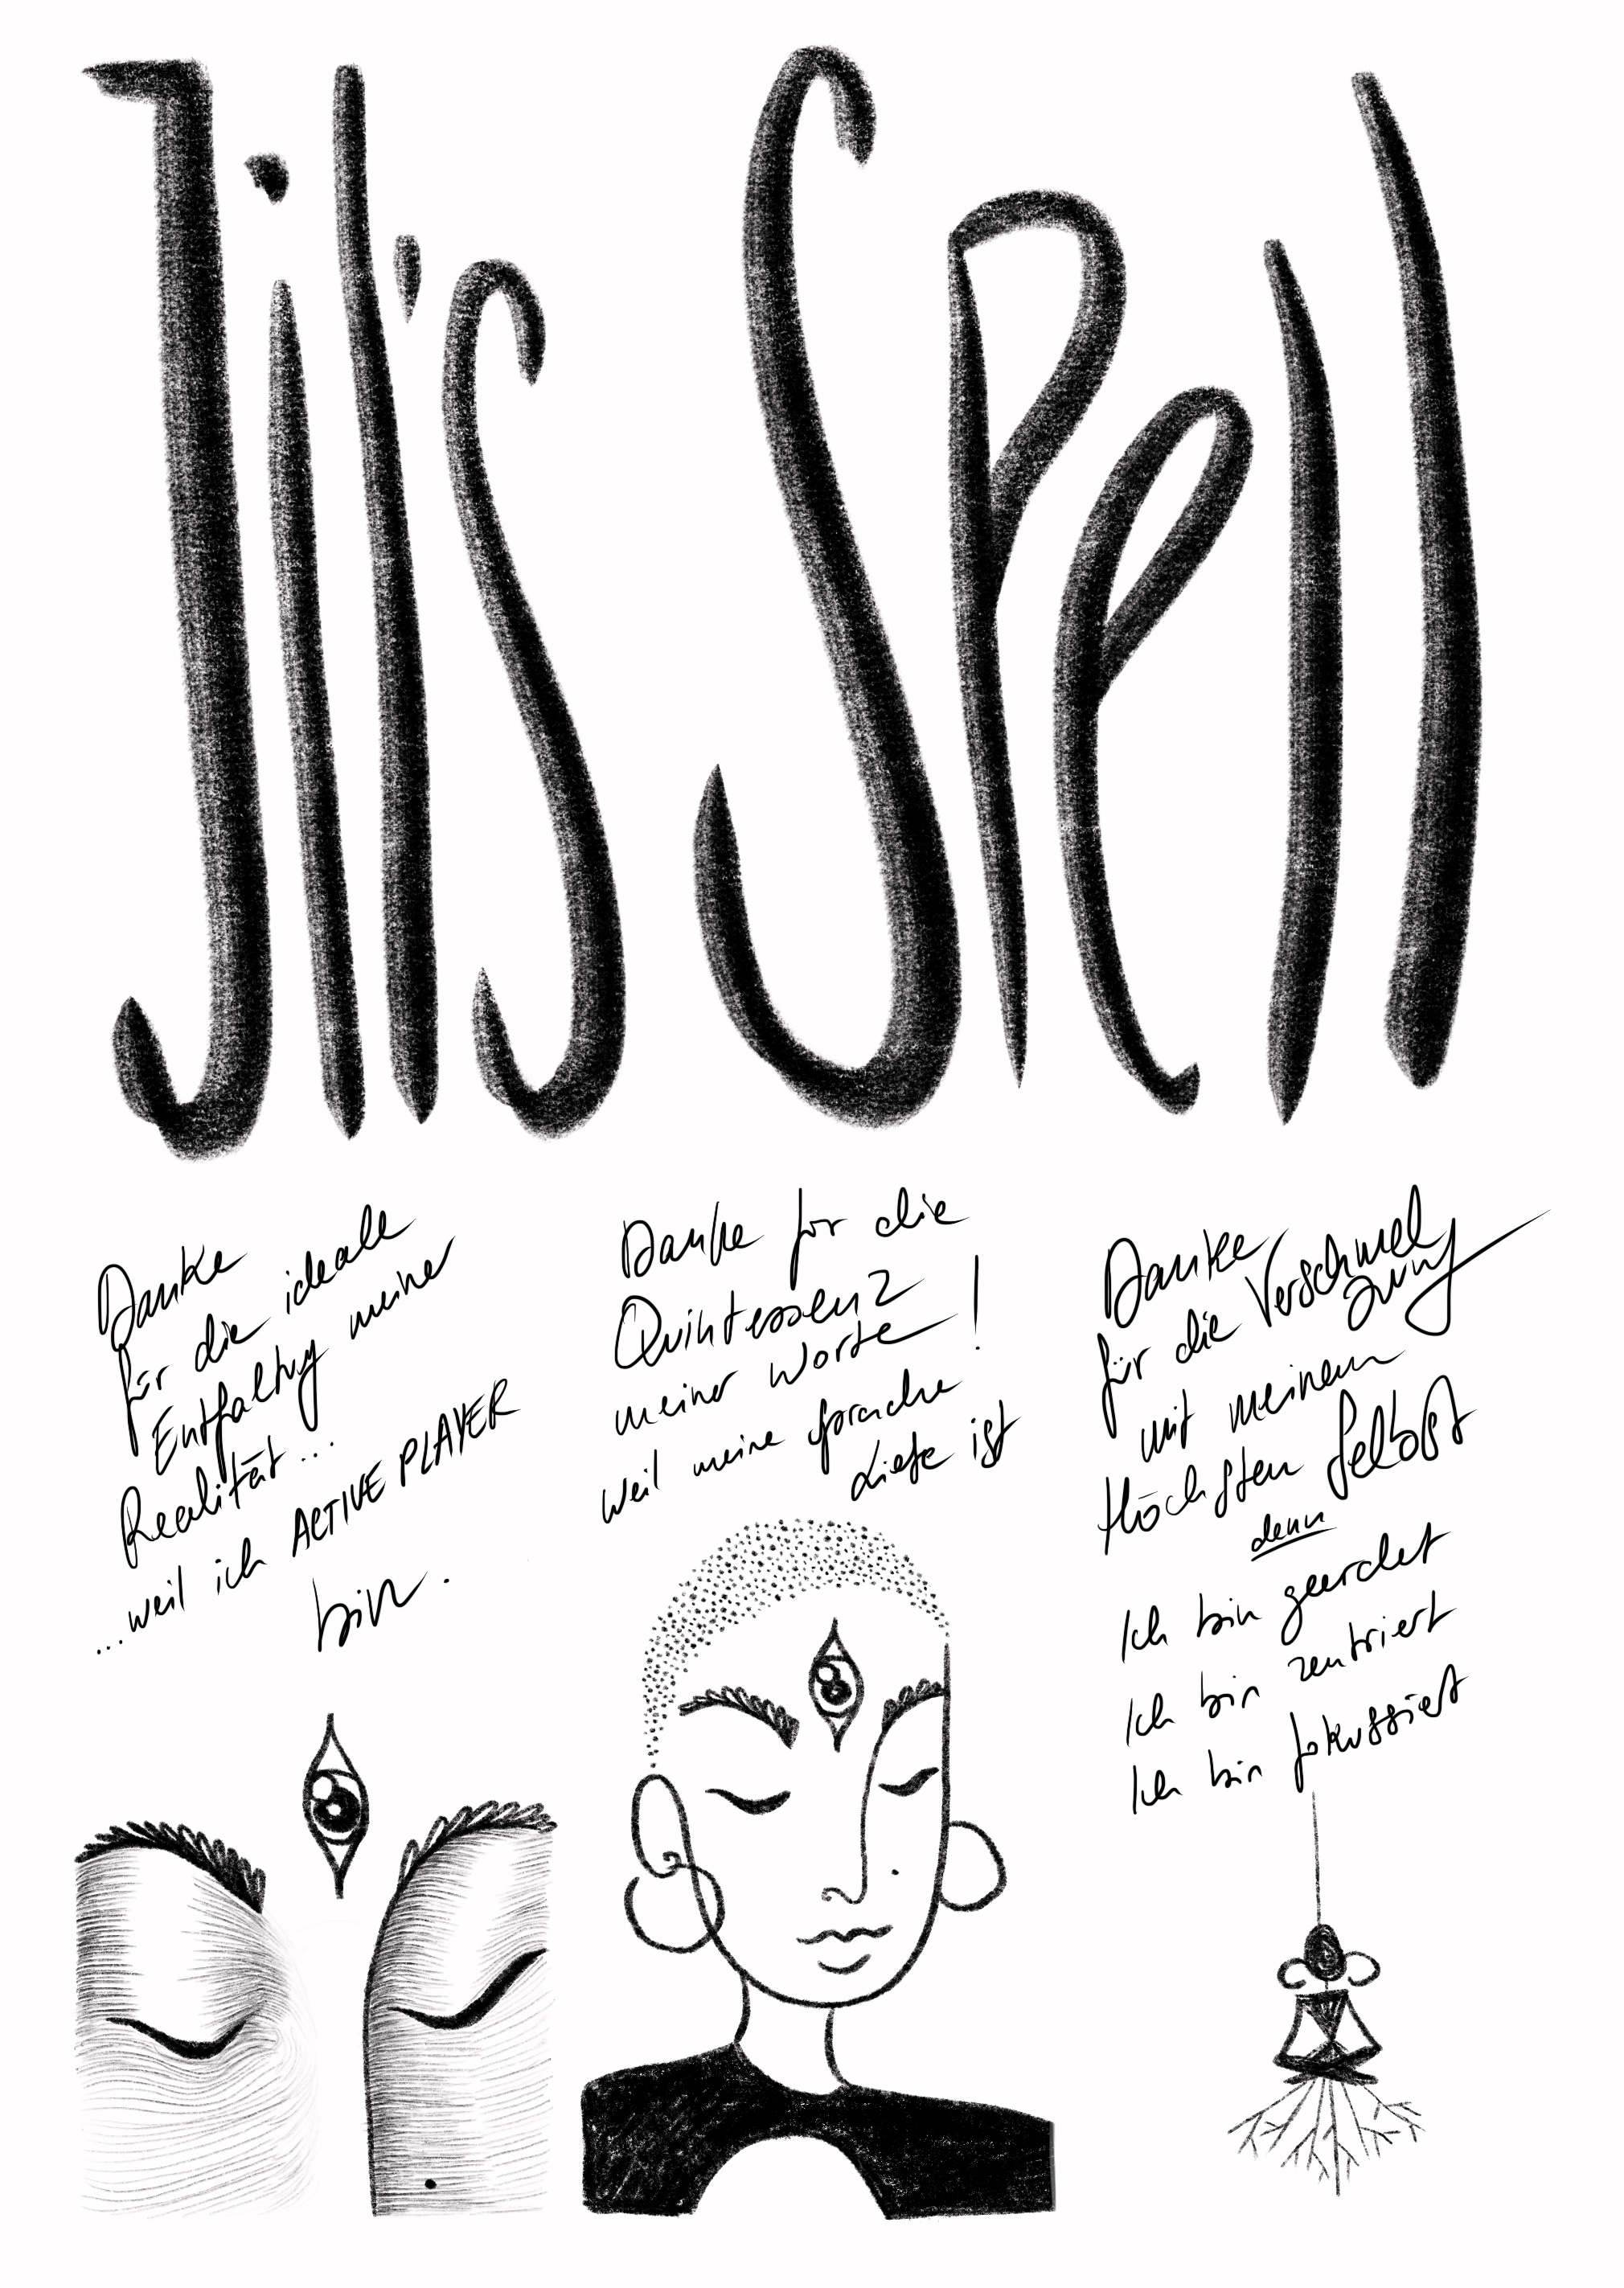 Jil's Spell
Danke
für die ideale
Entfaltung meiner
Realität...
...weil ich ACTIVE PLAYER
bin.
Danke für die
Quintessenz
meiner Worte!
weil meine Sprache
Liebe ist
Danke
für die Verschmel
zung
mit meinem
Höchsten Selbst
denn
Ich bin geerdet
Ich bin zentriert
Ich bin fokussiert